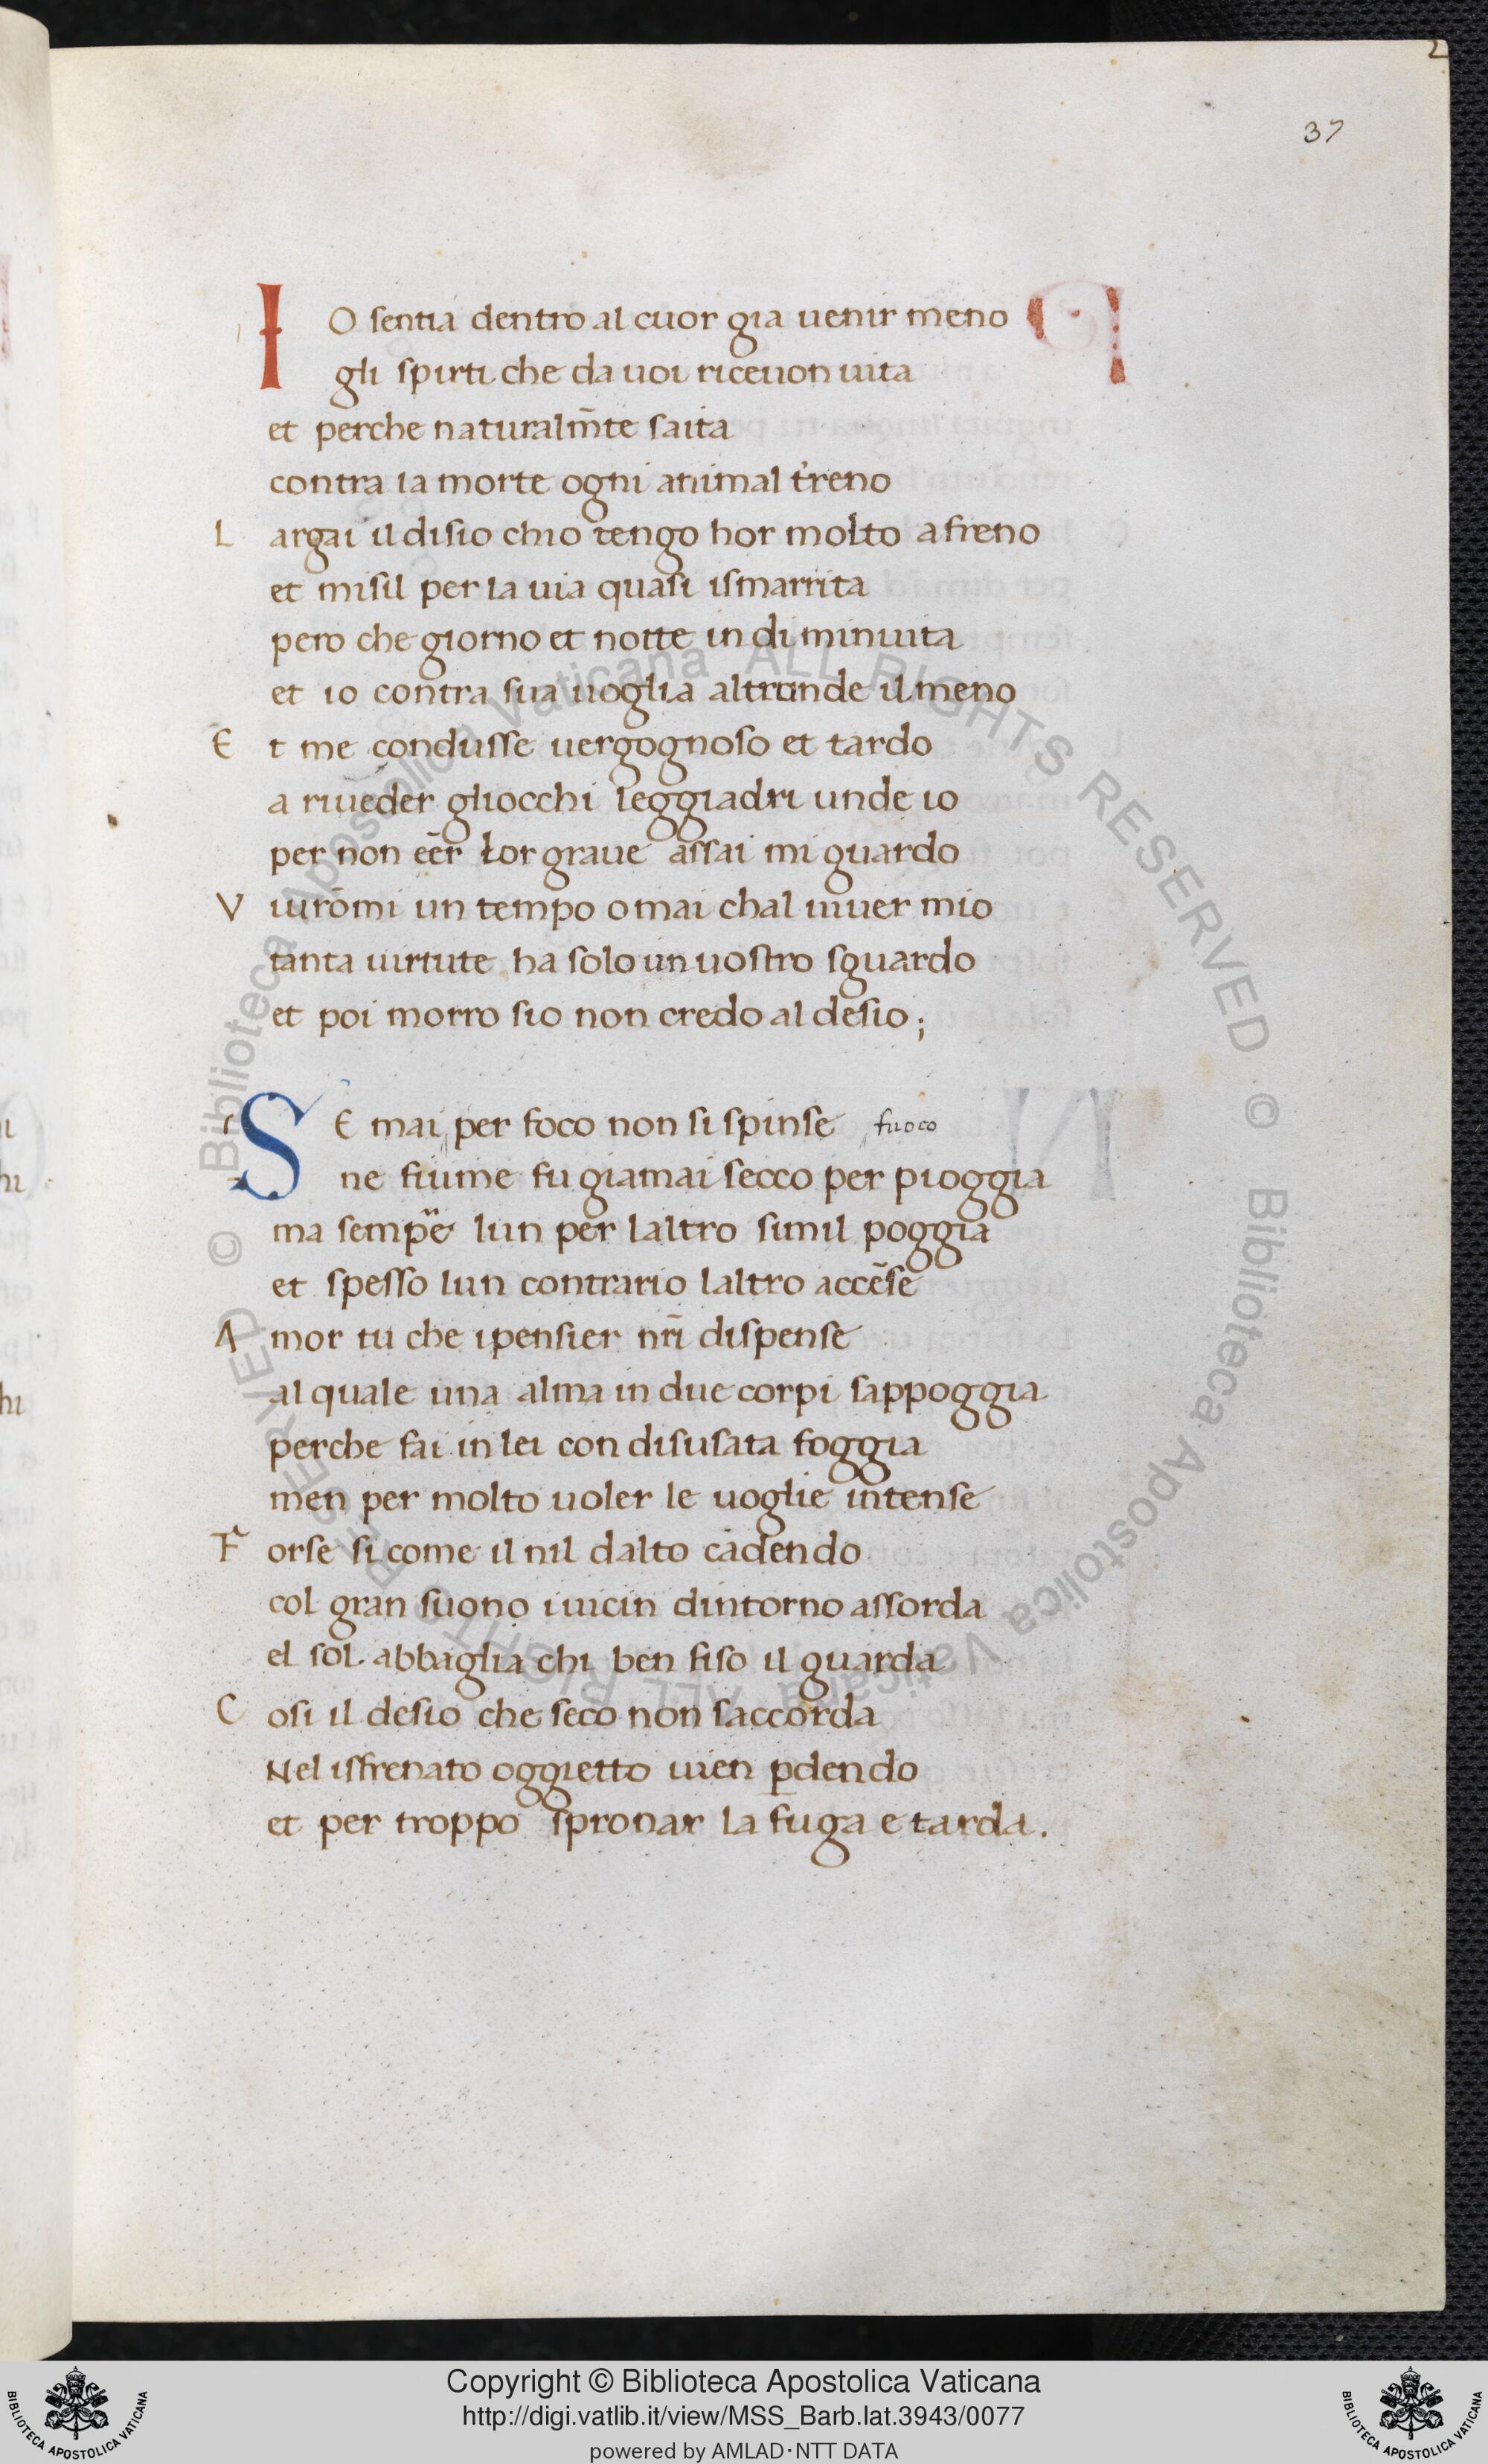 37
IO sentia dentro al cuor gia uenir meno
gli spirti che da uoi riceuon uita
et perche naturalm̄te saita
contra la morte ogni animal t'reno
Largai il disio chio tengo hor molto a freno
et misil per la uia quasi ismarrita
pero che giorno et notte in di minuita
et io contra sua uoglia altronde il meno
Et me condusse uergognoso et tardo
a riueder gliocchi leggiadri unde io
per non eēr łor graue assai mi guardo
Viurōmi un tempo omai chal uiuer mio
tanta uirtute ha solo un uostro sguardo
et poi morro sio non credo al desio;
SE mai per foco non si spinse fuoco
ne fiume fu giamai secco per pioggia
ma sempre lun per laltro simil poggia
et spesso lun contrario laltro accēse
Amor tu che ipensier nr̄i dispense
al quale una alma in due corpi sappoggia
perche fai in lei con disusata foggia
men per molto uoler le uoglie intense
Forse si come il nil dalto cadendo
col gran suono iuicin dintorno assorda
el sol abbaglia chi ben fiso il guarda
Cosi il desio che seco non saccorda
Nel isfrenato oggietto uien ꝑdendo
et per troppo spronar la fuga e tarda.
Copyright © Biblioteca Apostolica Vaticana
http://digi.vatlib.it/view/MSS_Barb.lat.3943/0077
powered by AMLAD·NTT DATA
BIBLIOTECA APOSTOLICA VATICANA
BIBLIOTECA APOSTOLICA VATICANA
© Biblioteca Apostolica Vaticana ALL RIGHTS RESERVED © Biblioteca Apostolica Vaticana ALL RIGHTS RESERVED